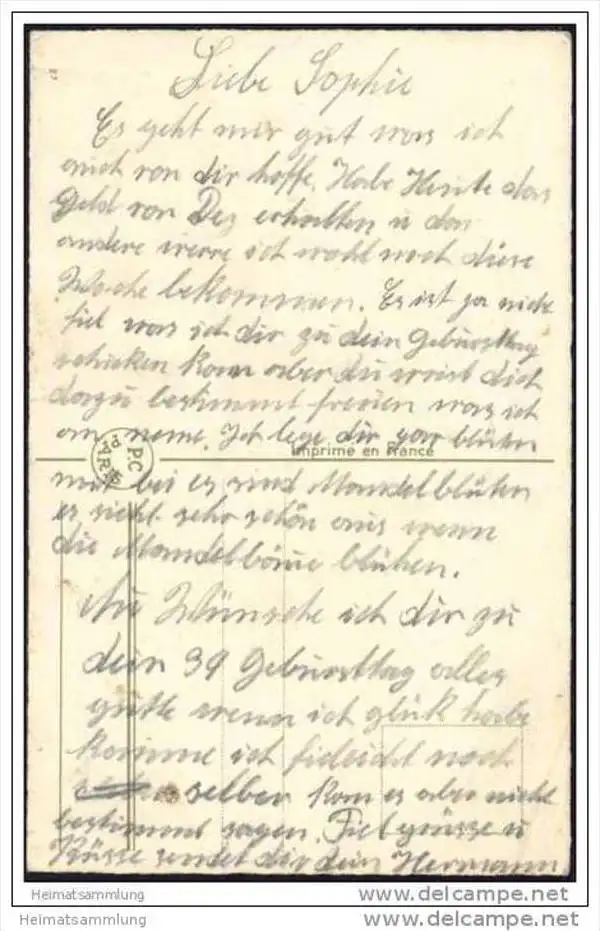 Liebe Sophie
Es geht mir gut was ich
auch von dir hoffe. Habe Heute das
Geld von Dez erhalten u das
andere werre ich wohl noch diese
Woche bekommen. Es ist ja nicht
fiel was ich dir zu dein Gebursttag
schicken kann aber du weist dich
dazu bestimmt freuen was ich
an neme. Ich lege dir par blüten
Imprime en France
P.C
PARIS
mit bei es sind Mandelblüten
es sieht sehr schön aus wenn
die Mandelböme blühen.
Nu Wünsche ich dir zu
dein 39 Gebursttag alles
gutte wenn ich glük habe
komme ich fieleicht noch
selber kan es aber nicht
bestimmt sagen. Fiel grüsse u
Küsse sendet dir dein Hermann
Heimatsammlung
Heimatsammlung
delcampe.net
delcampe.net